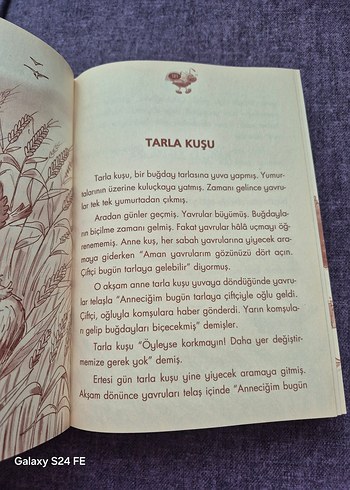 TARLA KUŞU
Tarla kuşu, bir buğday tarlasına yuva yapmış. Yumur-
talarının üzerine kuluçkaya yatmış. Zamanı gelince yavru-
lar tek tek yumurtadan çıkmış.
Aradan günler geçmiş. Yavrular büyümüş. Buğdayla-
rın biçilme zamanı gelmiş. Fakat yavrular hâlâ uçmayı öğ-
renememiş. Anne kuş, her sabah yavrularına yiyecek ara-
maya giderken “Aman yavrularım gözünüzü dört açın.
Çiftçi bugün tarlaya gelebilir” diyormuş.
O akşam anne tarla kuşu yuvaya döndüğünde yavru-
lar telaşla “Anneciğim bugün tarlaya çiftçiyle oğlu geldi.
Çiftçi, oğluyla komşulara haber gönderdi. Yarın komşula-
rı gelip buğdayları biçecekmiş” demişler.
Tarla kuşu “Öyleyse korkmayın! Daha yer değiştir-
memize gerek yok” demiş.
Ertesi gün tarla kuşu yine yiyecek aramaya gitmiş.
Akşam dönünce yavruları telaş içinde “Anneciğim bugün
Galaxy S24 FE